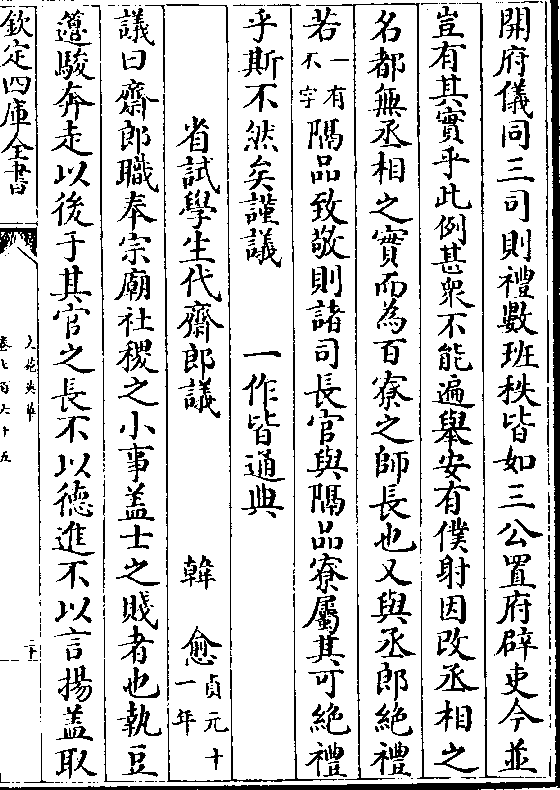 開府儀同三司則禮數班秩皆如三公置府辟吏今並
豈有其實乎此例甚衆不能遍舉安有僕射因改丞相之
名都無丞相之實而為百寮之師長也又與丞郎絶禮
若一有不字隔品致敬則諸司長官與隔品寮屬其可絶禮
乎斯不然矣謹議 一作皆通典
省試學生代齋郎議 韓愈貞元十一年
議曰齋郎職奉宗廟社稷之小事盖士之賤者也執豆
籩駿奔走以役于其官之長不以德進不以言揚盖取
欽定四庫全書
文苑英華
卷七百六十五